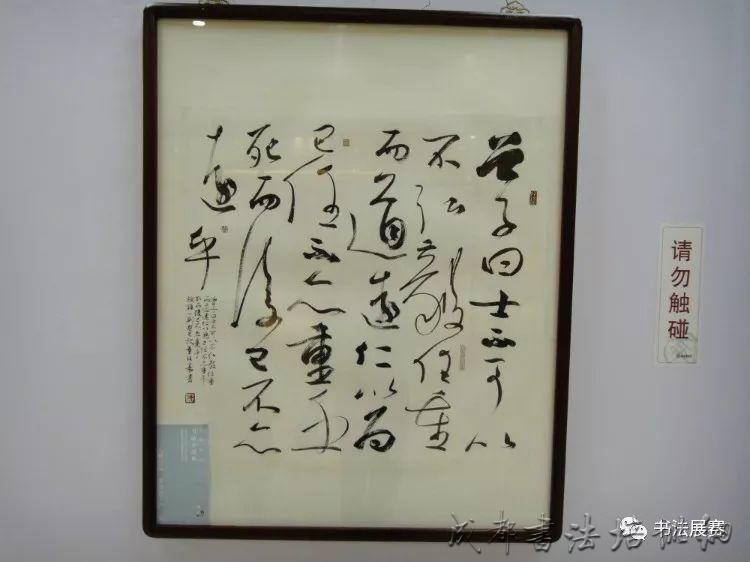 曾子曰士不可以
不弘毅任重
而道遠仁以為
己任不亦重乎
死而後已不亦
遠乎
请勿触碰
成都書法培训
书法展赛